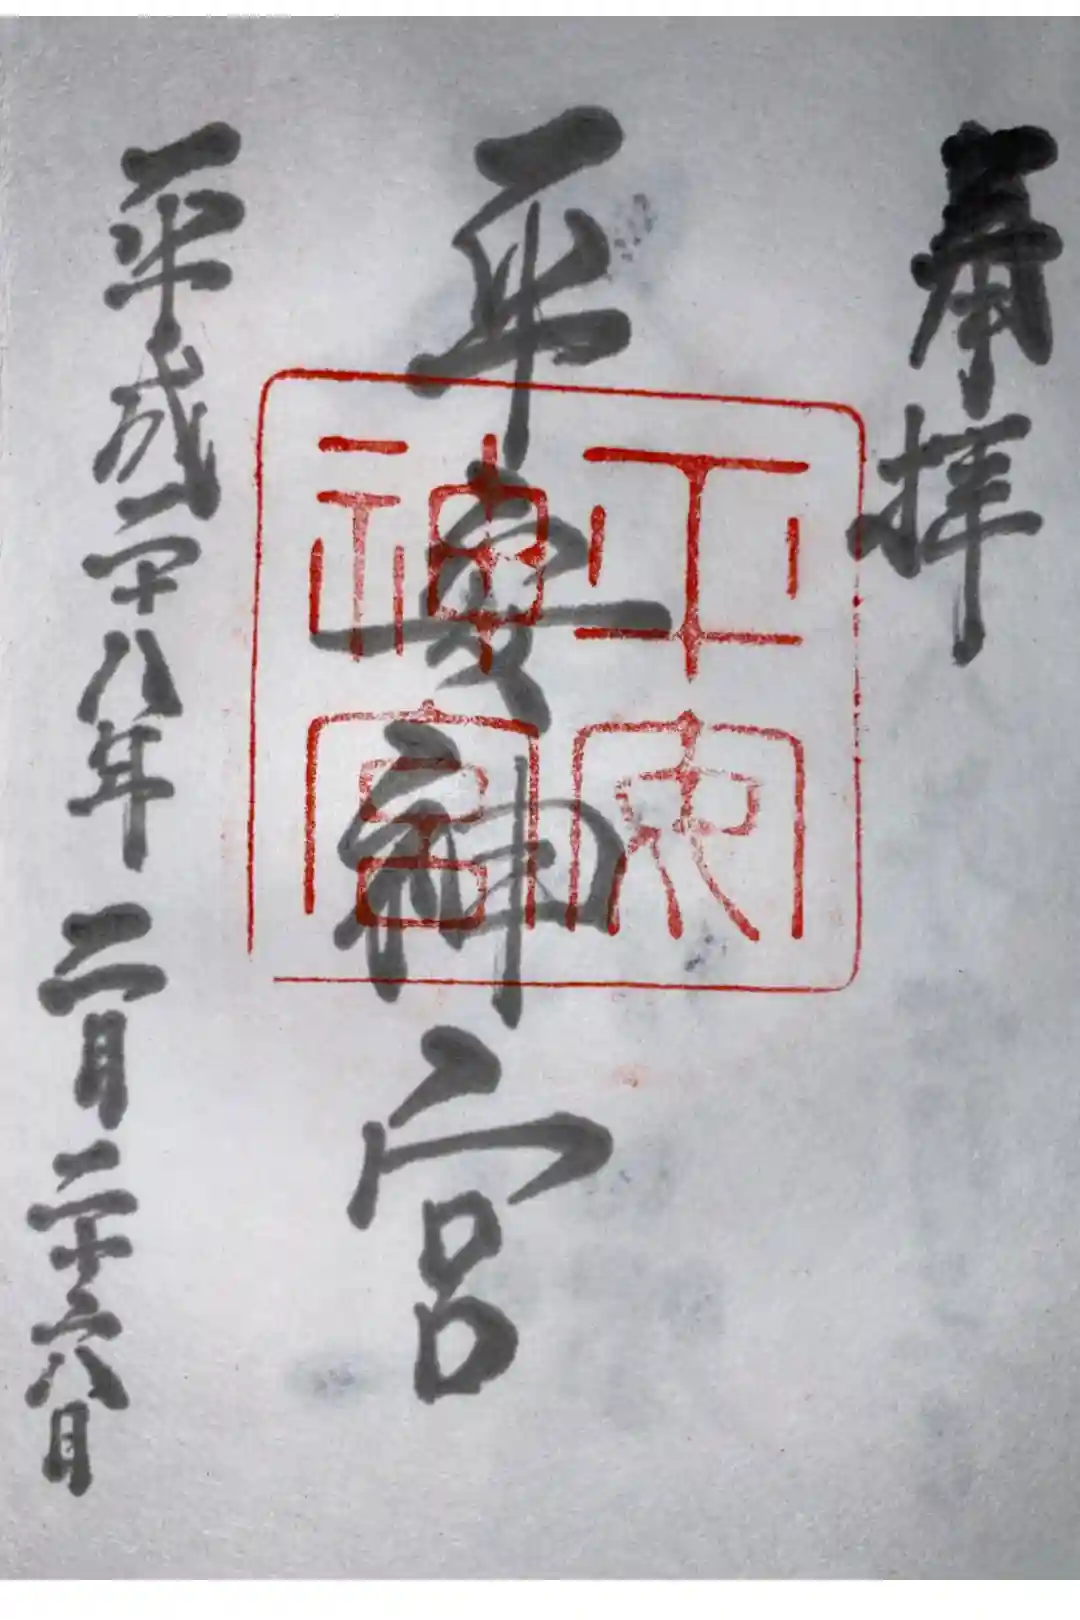 奉拝
平安神宮
平安神宮
平成二十八年二月二十六日